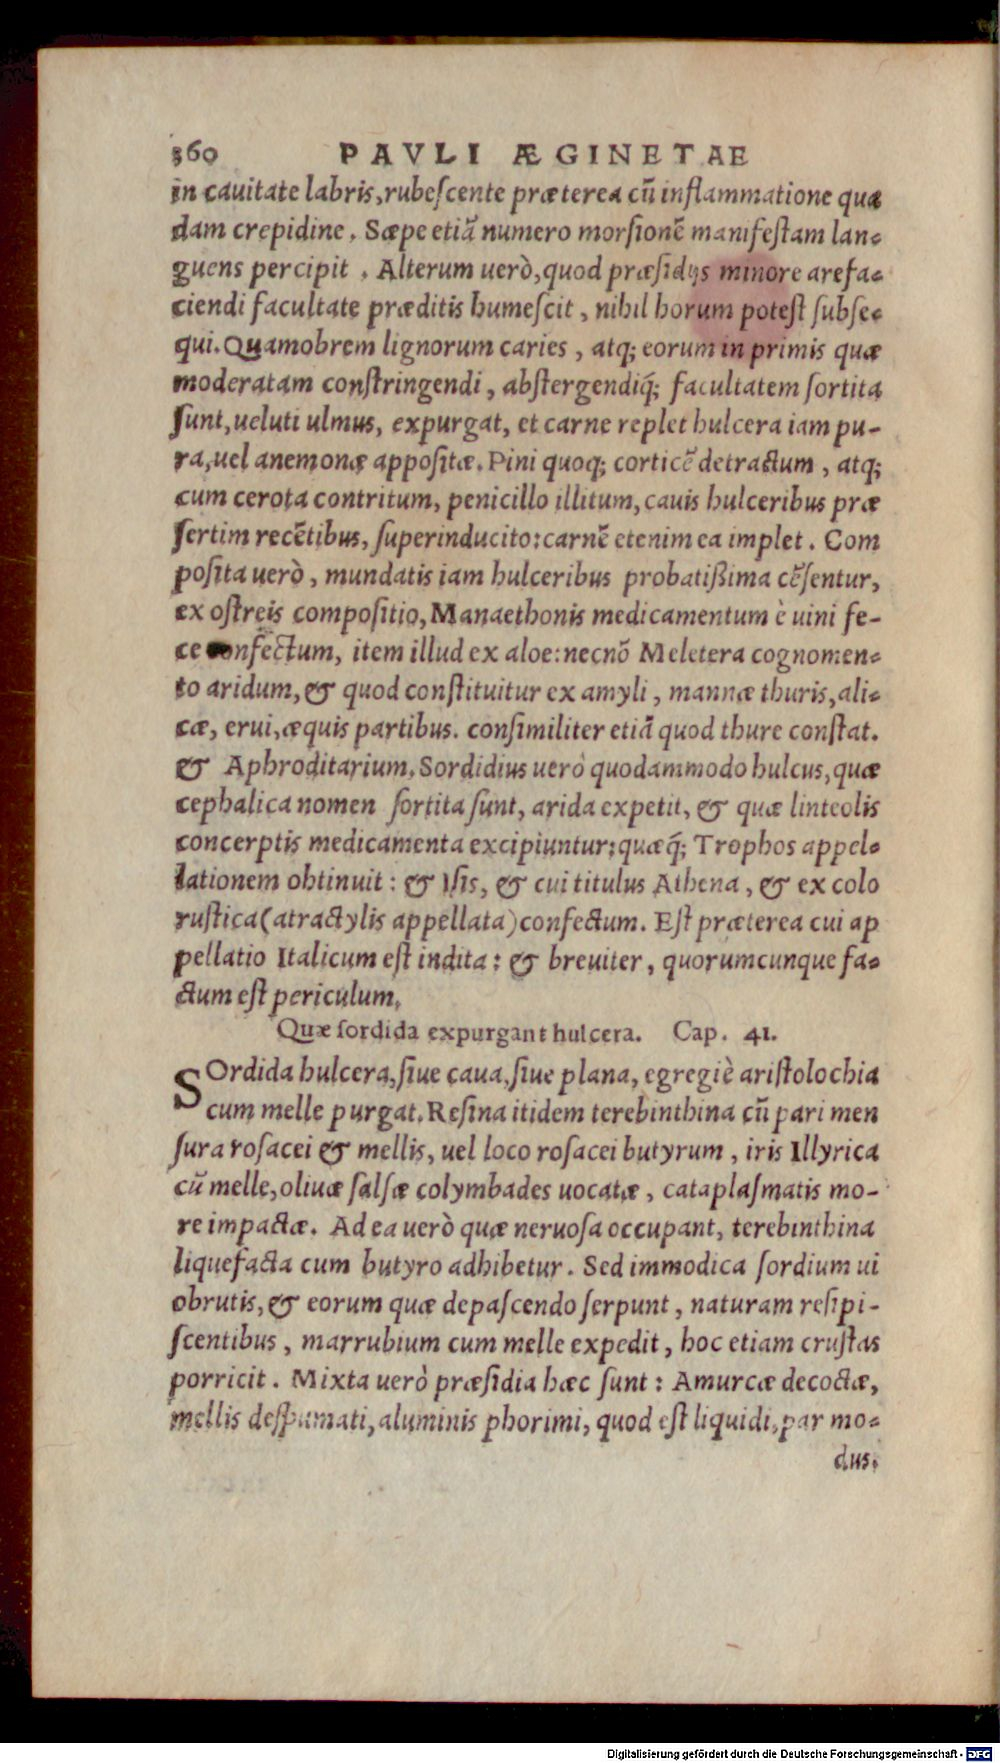 360 PAVLI ÆGINETAE
in cauitate labris, rubeſcente præterea cū inflammatione qua
dam crepidine. Sæpe etiã numero morſionẽ manifeſtam lan-
guens percipit. Alterum uerò, quod præſidijs minore arefa-
ciendi facultate præditis humeſcit, nihil horum poteſt ſubſe-
qui. Quamobrem lignorum caries, atq; eorum in primis quæ
moderatam conſtringendi, abſtergendiq́; facultatem ſortita
ſunt, ueluti ulmus, expurgat, et carne replet hulcera iam pu-
ra, uel anemonæ appoſitæ. Pini quoq; corticẽ detractum, atq;
cum cerota contritum, penicillo illitum, cauis hulceribus præ
ſertim recẽtibus, ſuperinducito: carnẽ etenim ea implet. Com
poſita uerò, mundatis iam hulceribus probatißima cẽſentur,
ex oſtreis compoſitio, Manaethonis medicamentum è uini fe-
ce confectum, item illud ex aloe: necnõ Meletera cognomen-
to aridum, & quod conſtituitur ex amyli, mannæ thuris, ali-
cæ, erui, æquis partibus. conſimiliter etiã quod thure conſtat.
& Aphroditarium. Sordidius uerò quodammodo hulcus, quæ
cephalica nomen ſortita ſunt, arida expetit, & quæ linteolis
concerptis medicamenta excipiuntur: quæq́; Trophos appel-
lationem obtinuit: & Iſis, & cui titulus Athena, & ex colo
ruſtica (atractylis appellata) confectum. Eſt præterea cui ap
pellatio Italicum eſt indita: & breuiter, quorumcunque fa-
ctum eſt periculum.
Quæ ſordida expurgant hulcera. Cap. 41.
SOrdida hulcera, ſiue caua, ſiue plana, egregiè ariſtolochia
cum melle purgat. Reſina itidem terebinthina cū pari men
ſura roſacei & mellis, uel loco roſacei butyrum, iris Illyrica
cū melle, oliuæ ſalſæ colymbades uocatæ, cataplaſmatis mo-
re impactæ. Ad ea uerò quæ neruoſa occupant, terebinthina
liquefacta cum butyro adhibetur. Sed immodica ſordium ui
obrutis, & eorum quæ depaſcendo ſerpunt, naturam reſipi-
ſcentibus, marrubium cum melle expedit, hoc etiam cruſtas
porricit. Mixta uerò præſidia hæc ſunt: Amurcæ decoctæ,
mellis deſpumati, aluminis phorimi, quod eſt liquidi, par mo-
dus.
Digitalisierung gefördert durch die Deutsche Forschungsgemeinschaft - DFG